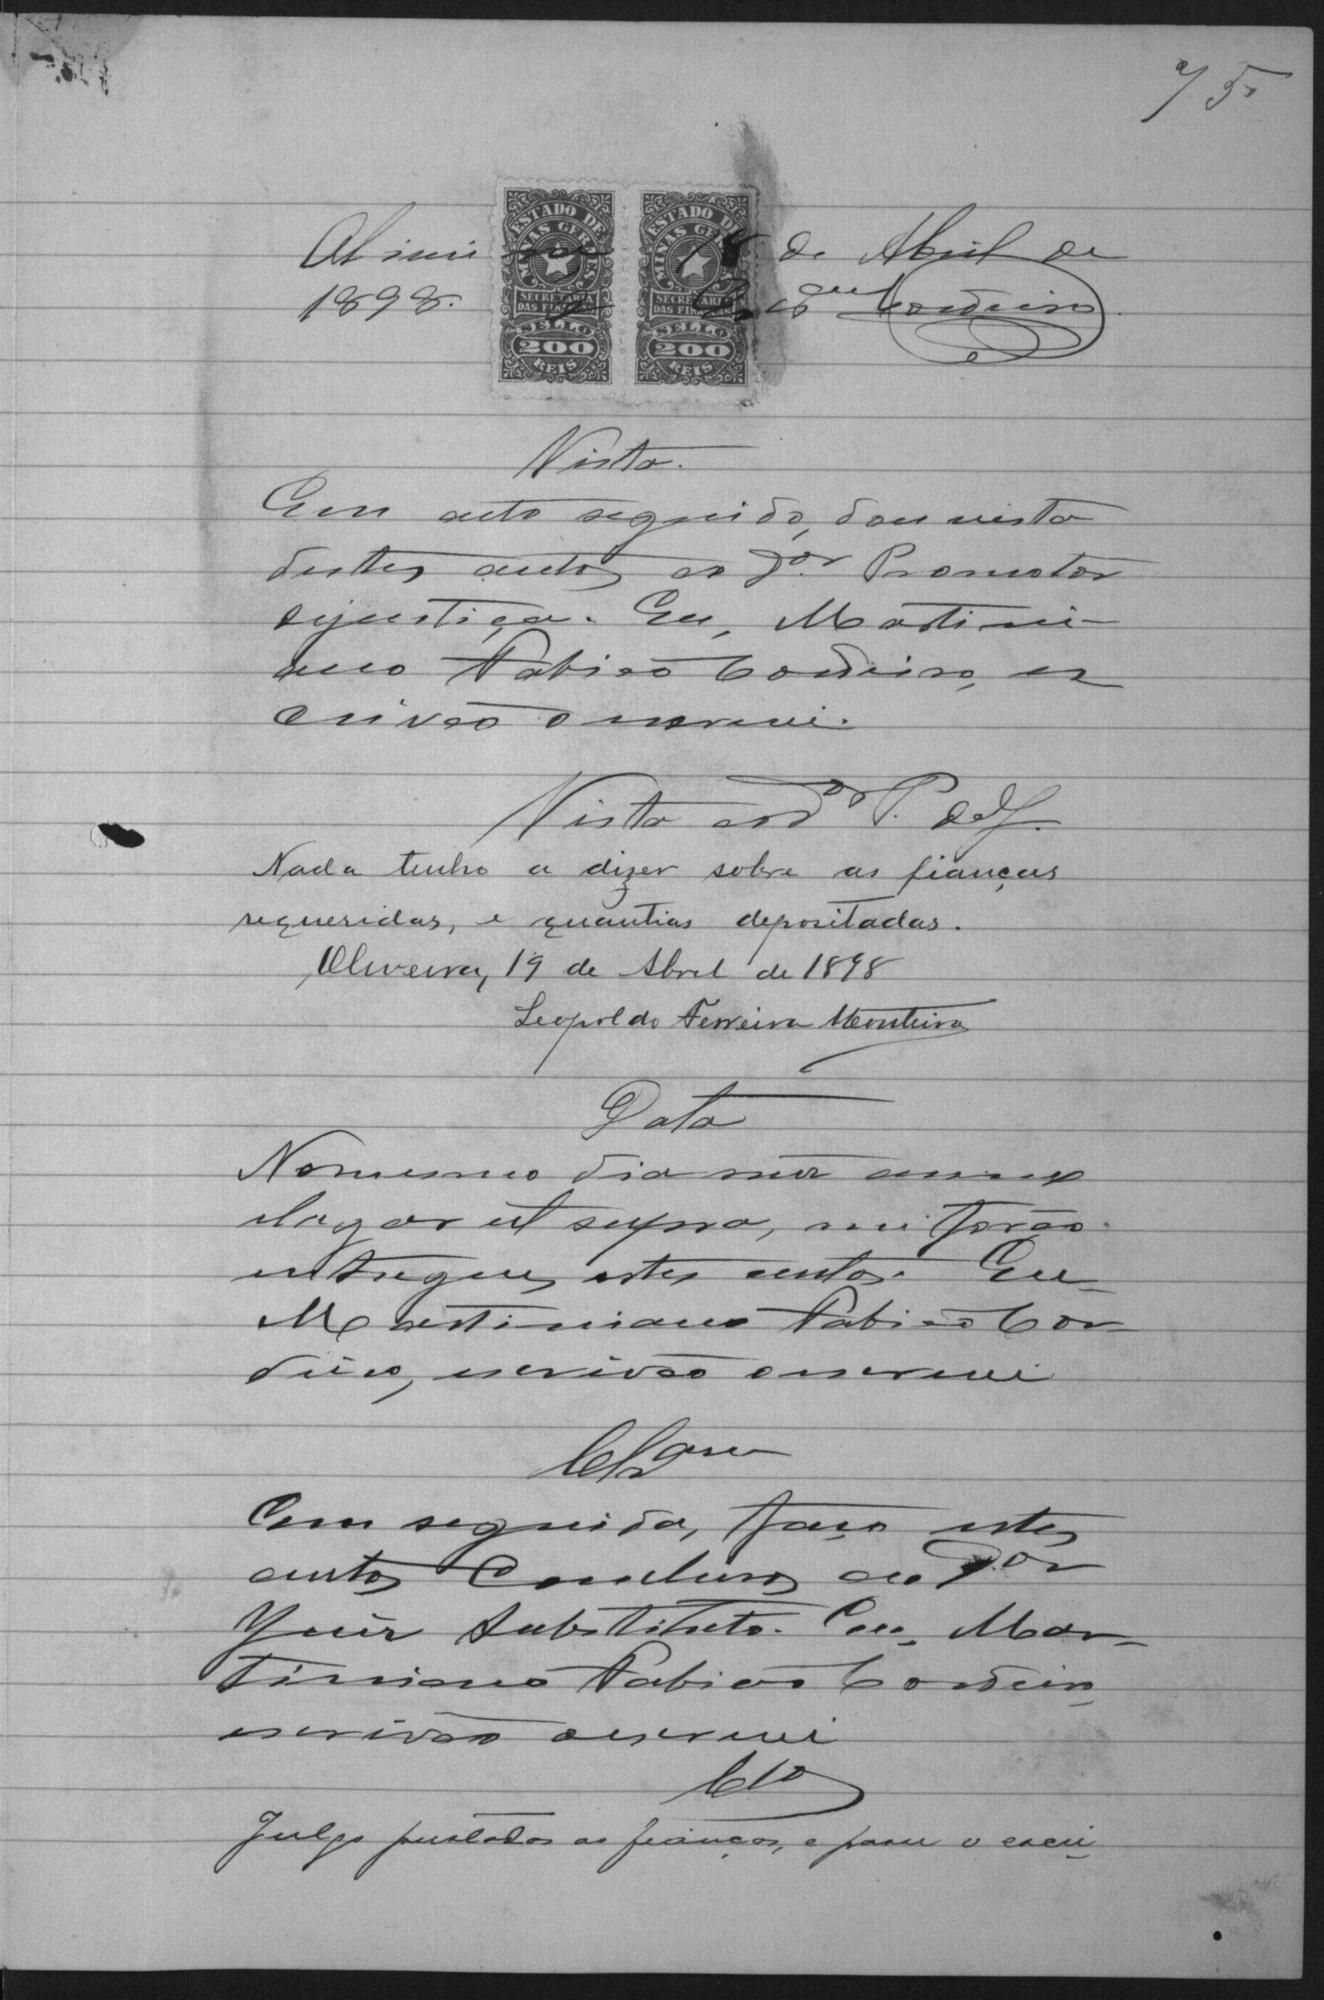 75
ESTADO DE MINAS GERAES SECRETARIA DAS FINANÇAS SELLO 200 REIS
ESTADO DE MINAS GERAES SECRETARIA DAS FINANÇAS SELLO 200 REIS
de Abril de
1898. Cordeiro
Vista.
Em acto seguido, dou vista
destes autos ao Dor Promotor
dejustiça. Eu, Martini-
ano Fabião Cordeiro, es
crivão o escrevi.
Vista ao Dor P. de J.
Nada tenho a dizer sobre as fianças
requeridas, e quantias depositadas.
Oliveira, 19 de Abril de 1898
Leopoldo Ferreira Monteiro
Data
No mesmo dia mez anno
elogar ut supra, me forão
entregues estes autos. Eu
Martiniano Fabião Cor
deiro, escrivão o escrevi
Clsam
Em seguida, faço estes
autos Conclusos ao Dor
Juiz Substituto. Eu, Mar-
tiniano Fabião Cordeiro
escrivão o escrevi
Clo
Julgo prestadas as fianças, e passe o escri-